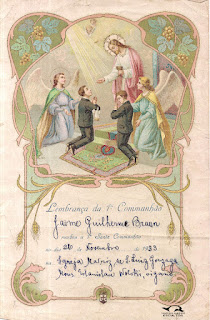 Lembrança da 1ª Communhão
Jaime Guilherme Braun
recebeu a 1ª Santa Communhão
em 20 de Novembro de 1933
na Igreja Matriz de S. Luiz Gonzaga
Mons. Estanislau Wolski, vigario